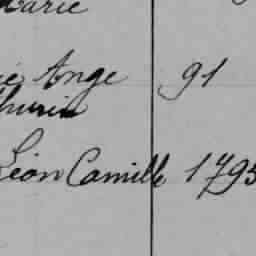 Marie
Ange 91
Léon Camille 1795